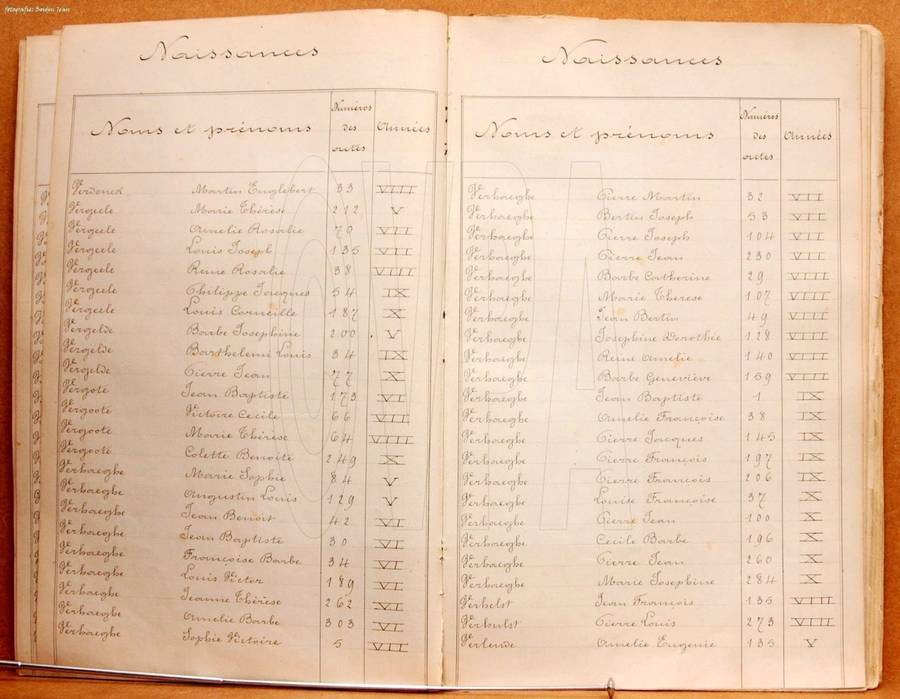 fotografies Bordon Jean
Naissances
Noms et prénoms
Numéros des actes
Années
Verdonck Martin Englebert 33 VIII
Vergeele Marie Thérèse 212 V
Vergeele Amelie Rosalie 79 VII
Vergeele Louis Joseph 135 VII
Vergeele Reine Rosalie 38 VIII
Vergeele Philippe Jacques 54 IX
Vergeele Louis Corneille 187 X
Vergelde Barbe Josephine 200 V
Vergelde Barthelemi Louis 34 IX
Vergelde Pierre Jean 77 X
Vergote Jean Baptiste 173 VI
Vergoote Victoire Cecile 66 VII
Vergoote Marie Thérèse 64 VIII
Vergoote Colette Benoite 249 X
Verhaeghe Marie Sophie 84 V
Verhaeghe Augustin Louis 129 V
Verhaeghe Jean Benoit 42 VI
Verhaeghe Jean Baptiste 30 VI
Verhaeghe Françoise Barbe 34 VI
Verhaeghe Louis Victor 189 VI
Verhaeghe Jeanne Thérèse 262 VI
Verhaeghe Amelie Barbe 303 VI
Verhaeghe Sophie Victoire 5 VII
Naissances
Noms et prénoms
Numéros des actes
Années
Verhaeghe Pierre Martin 32 VII
Verhaeghe Bertin Joseph 53 VII
Verhaeghe Pierre Joseph 104 VII
Verhaeghe Pierre Jean 230 VII
Verhaeghe Barbe Catherine 29 VIII
Verhaeghe Marie Therese 107 VIII
Verhaeghe Jean Bertin 49 VIII
Verhaeghe Josephine Dorothée 128 VIII
Verhaeghe Reine Amelie 140 VIII
Verhaeghe Barbe Geneviève 159 VIII
Verhaeghe Jean Baptiste 1 IX
Verhaeghe Amelie Françoise 38 IX
Verhaeghe Pierre Jacques 145 IX
Verhaeghe Pierre François 197 IX
Verhaeghe Pierre François 206 IX
Verhaeghe Louise Françoise 37 X
Verhaeghe Pierre Jean 100 X
Verhaeghe Cecile Barbe 196 X
Verhaeghe Pierre Jean 260 X
Verhaeghe Marie Josephine 284 X
Verhelst Jean François 135 VIII
Verhulst Pierre Louis 273 VIII
Verlende Amelie Eugenie 135 V